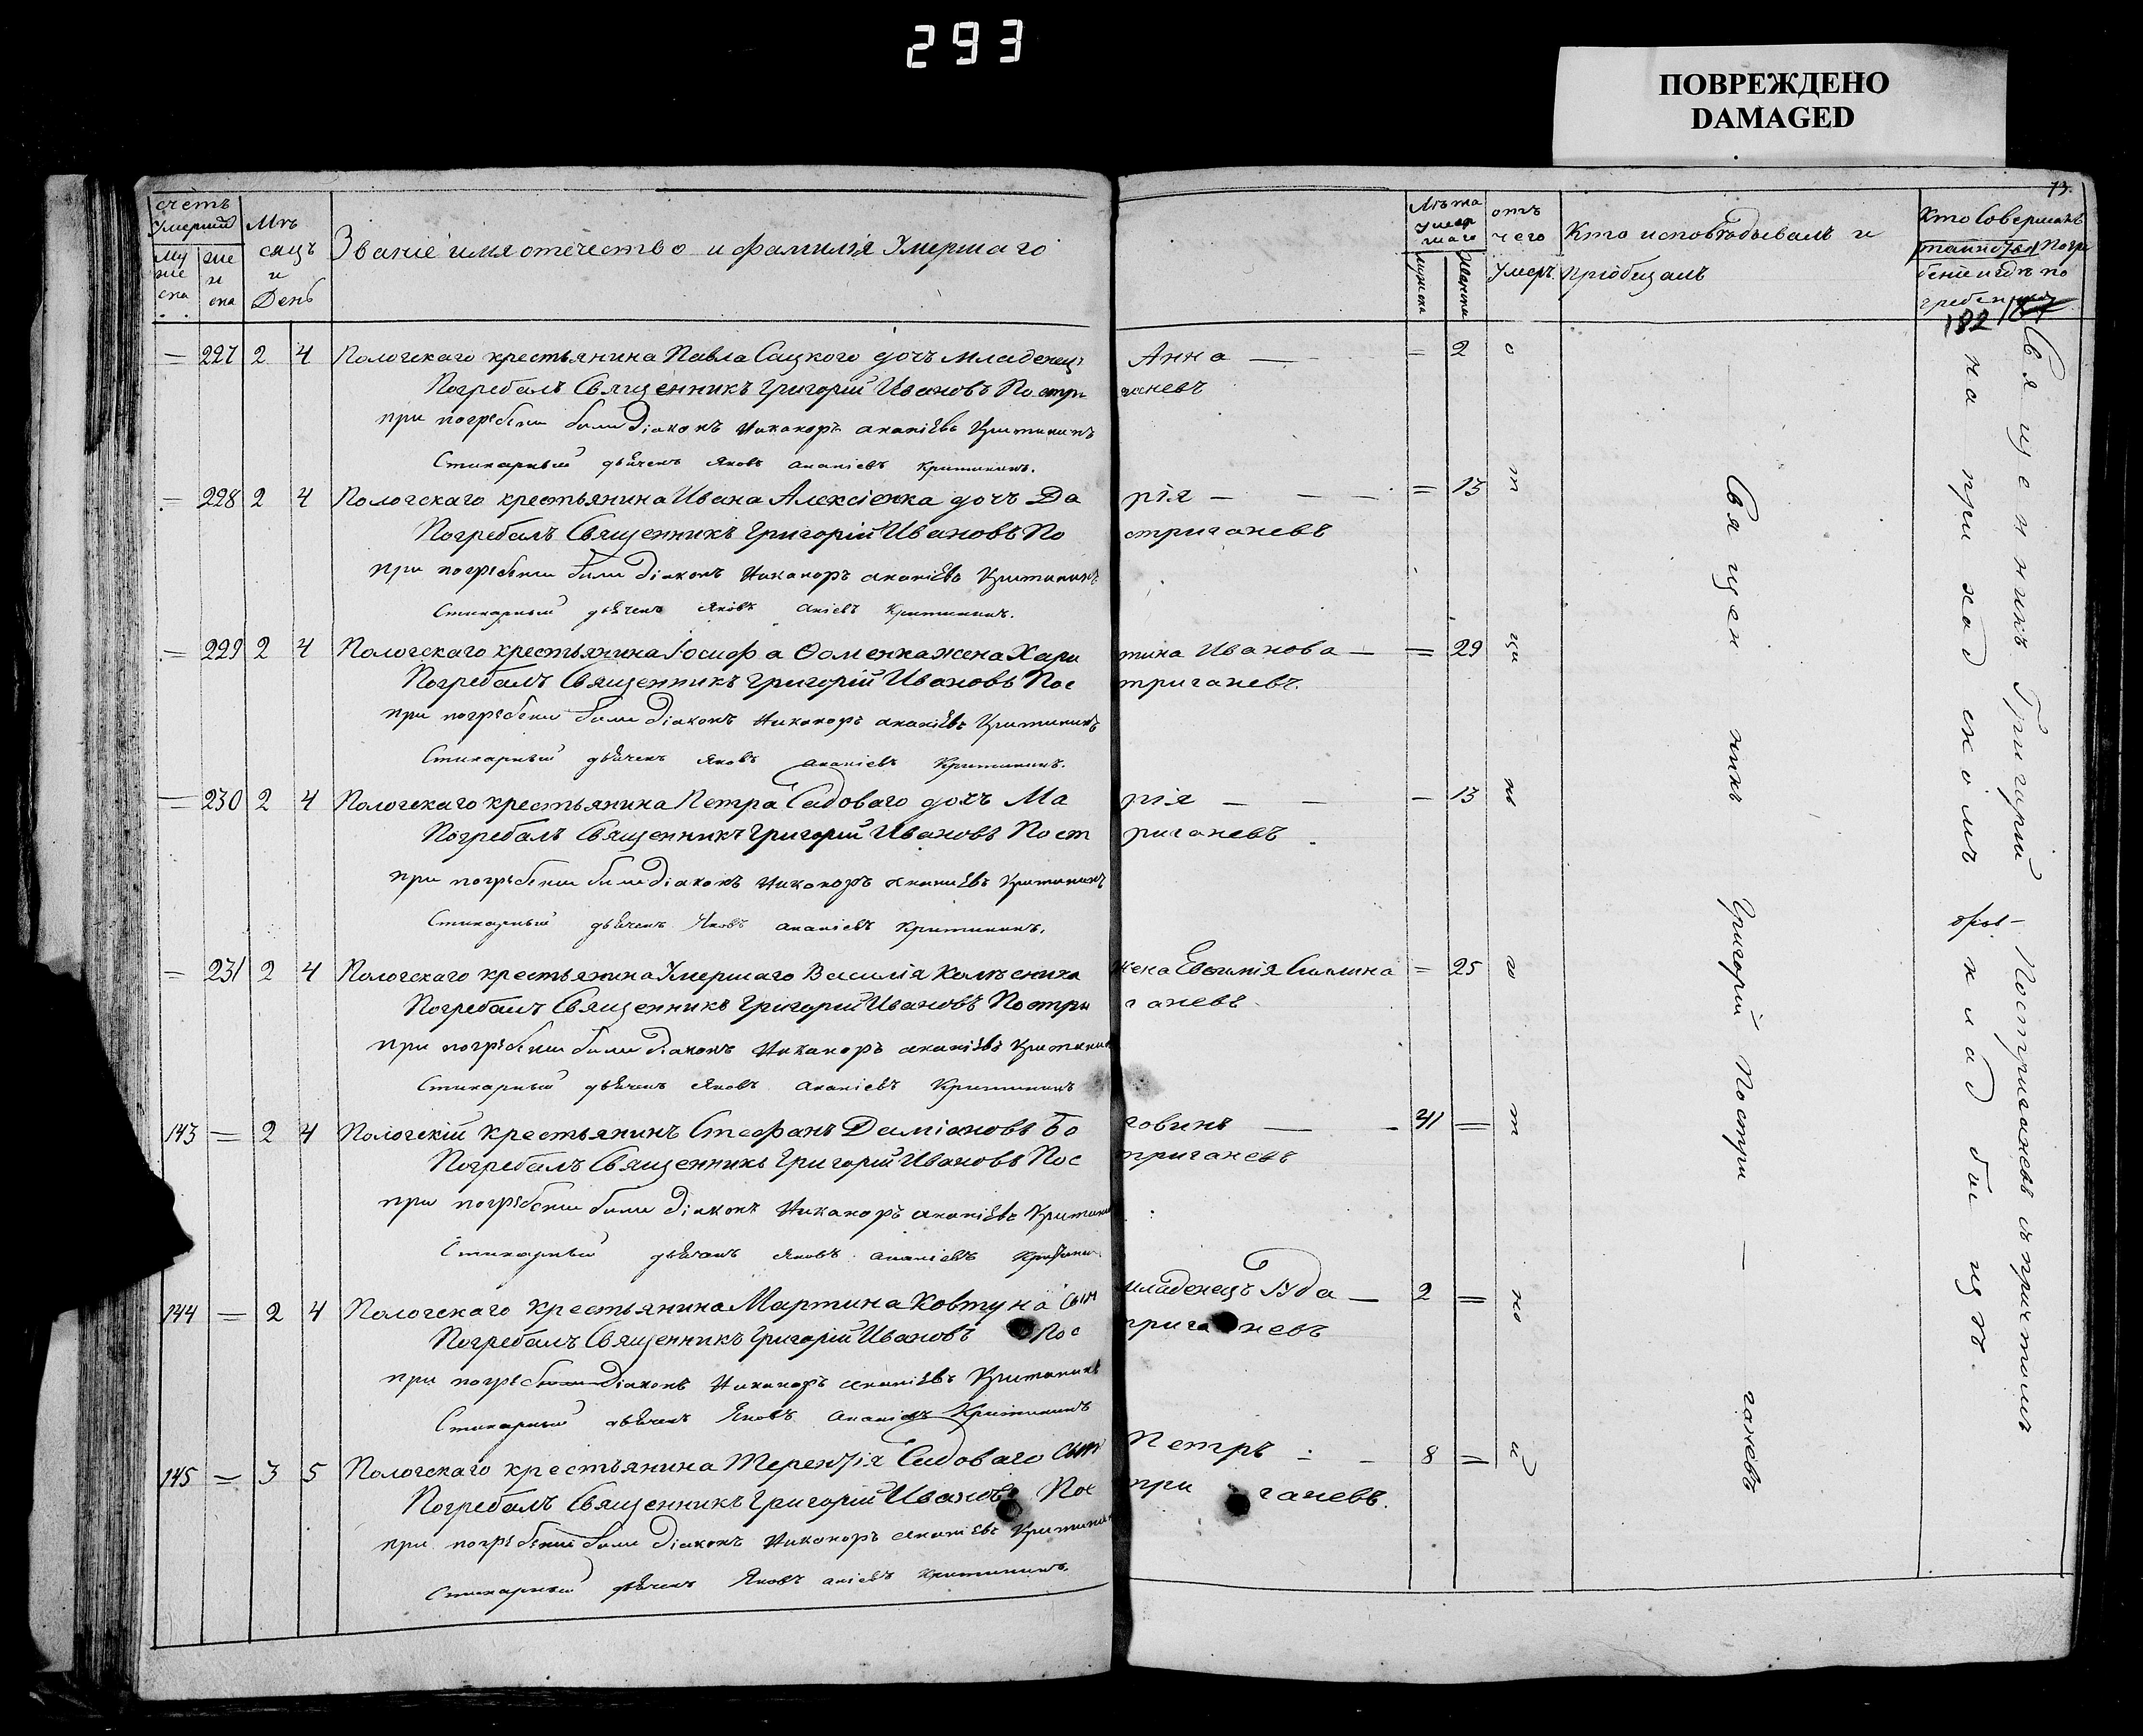 293
ПОВРЕЖДЕНО
DAMAGED
73.
счетъ Умершихъ
Муже ска
жен ска
Мѣсяцъ и День
Званіе имя отечество и фамилія Умершаго
Лѣта умершаго
мужска
женска
отъ чего умеръ
Кто исповѣдывалъ и пріобщалъ
Кто Совершалъ погребеніе и гдѣ погребены
182
= 227 2 4 Пологскаго крестьянина Павла Сацкого дочъ младенецъ Анна — = 2
Погребалъ Священникъ Григорій Ивановъ Постриганевъ
при погребени были Діаконъ Никаноръ Ананіевъ Критининъ
Стихарный дьячекъ Яковъ Ананіевъ Критининъ.
= 228 2 4 Пологскаго крестьянина Ивана Алексіенка дочъ Дарія — — — = 13
Погребалъ Священникъ Григорій Ивановъ Постриганевъ
при погребени были Діаконъ Никаноръ Ананіевъ Критининъ
Стихарный дьячекъ Яковъ Аніевъ Критининъ.
= 229 2 4 Пологскаго крестьянина Іосифа Ѳоменка жена Харитина Иванова — = 29
Погребалъ Священникъ Григорій Ивановъ Постриганевъ.
при погребени были Діаконъ Никаноръ Ананіевъ Критининъ
Стихарный дьячекъ Яковъ Ананіевъ Критининъ.
= 230 2 4 Пологскаго крестьянина Петра Садоваго дочъ Марія — — — 13
Погребалъ Священникъ Григорій Ивановъ Постриганевъ
при погребени были Діаконъ Никаноръ Ананіевъ Критининъ
Стихарный дьячекъ Яковъ Ананіевъ Критининъ.
= 231 2 4 Пологскаго крестьянина Умершаго Василія Колѣсника жена Евѳимія = 25
Погребалъ Священникъ Григорій Ивановъ Постриганевъ
при погребени были Діаконъ Никаноръ Ананіевъ Критинин
Стихарный дьячекъ Яковъ Ананіевъ Критининъ
143 = 2 4 Пологскій крестьянинъ Стефанъ Даміановъ Боговинъ — - 41 =
Погребалъ Священникъ Григорій Ивановъ Постриганевъ
при погребени были Діаконъ Никаноръ Ананіевъ Критини
Стихарный дьячекъ Яковъ Ананіевъ Критини
144 = 2 4 Пологскаго крестьянина Мартина Ковтуна сынъ младенецъ Іуда — 2 =
Погребалъ Священникъ Григорій Ивановъ Постриганевъ
при погребени Діаконъ Никаноръ Ананіевъ Критининъ
Стихарный дьячекъ Яковъ Ананіевъ Критининъ
145 = 3 5 Пологскаго крестьянина Терентія Садоваго сынъ Петръ — 8 =
Погребалъ Священникъ Григорій Ивановъ Постриганевъ.
при погребеніи были Діаконъ Никаноръ Ананіевъ Критинин
Стихарный дьячекъ Яковъ Аніевъ Критининъ.
Священникъ Григорій Постри — ганевъ
Священникъ Григорій Постриганевъ съ причтомъ
на приходскомъ кладбищѣ.